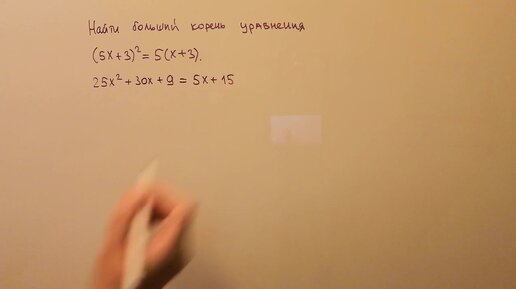 Найти больший корень уравнения
(5x+3)² = 5(x+3).
25x² + 30x + 9 = 5x + 15